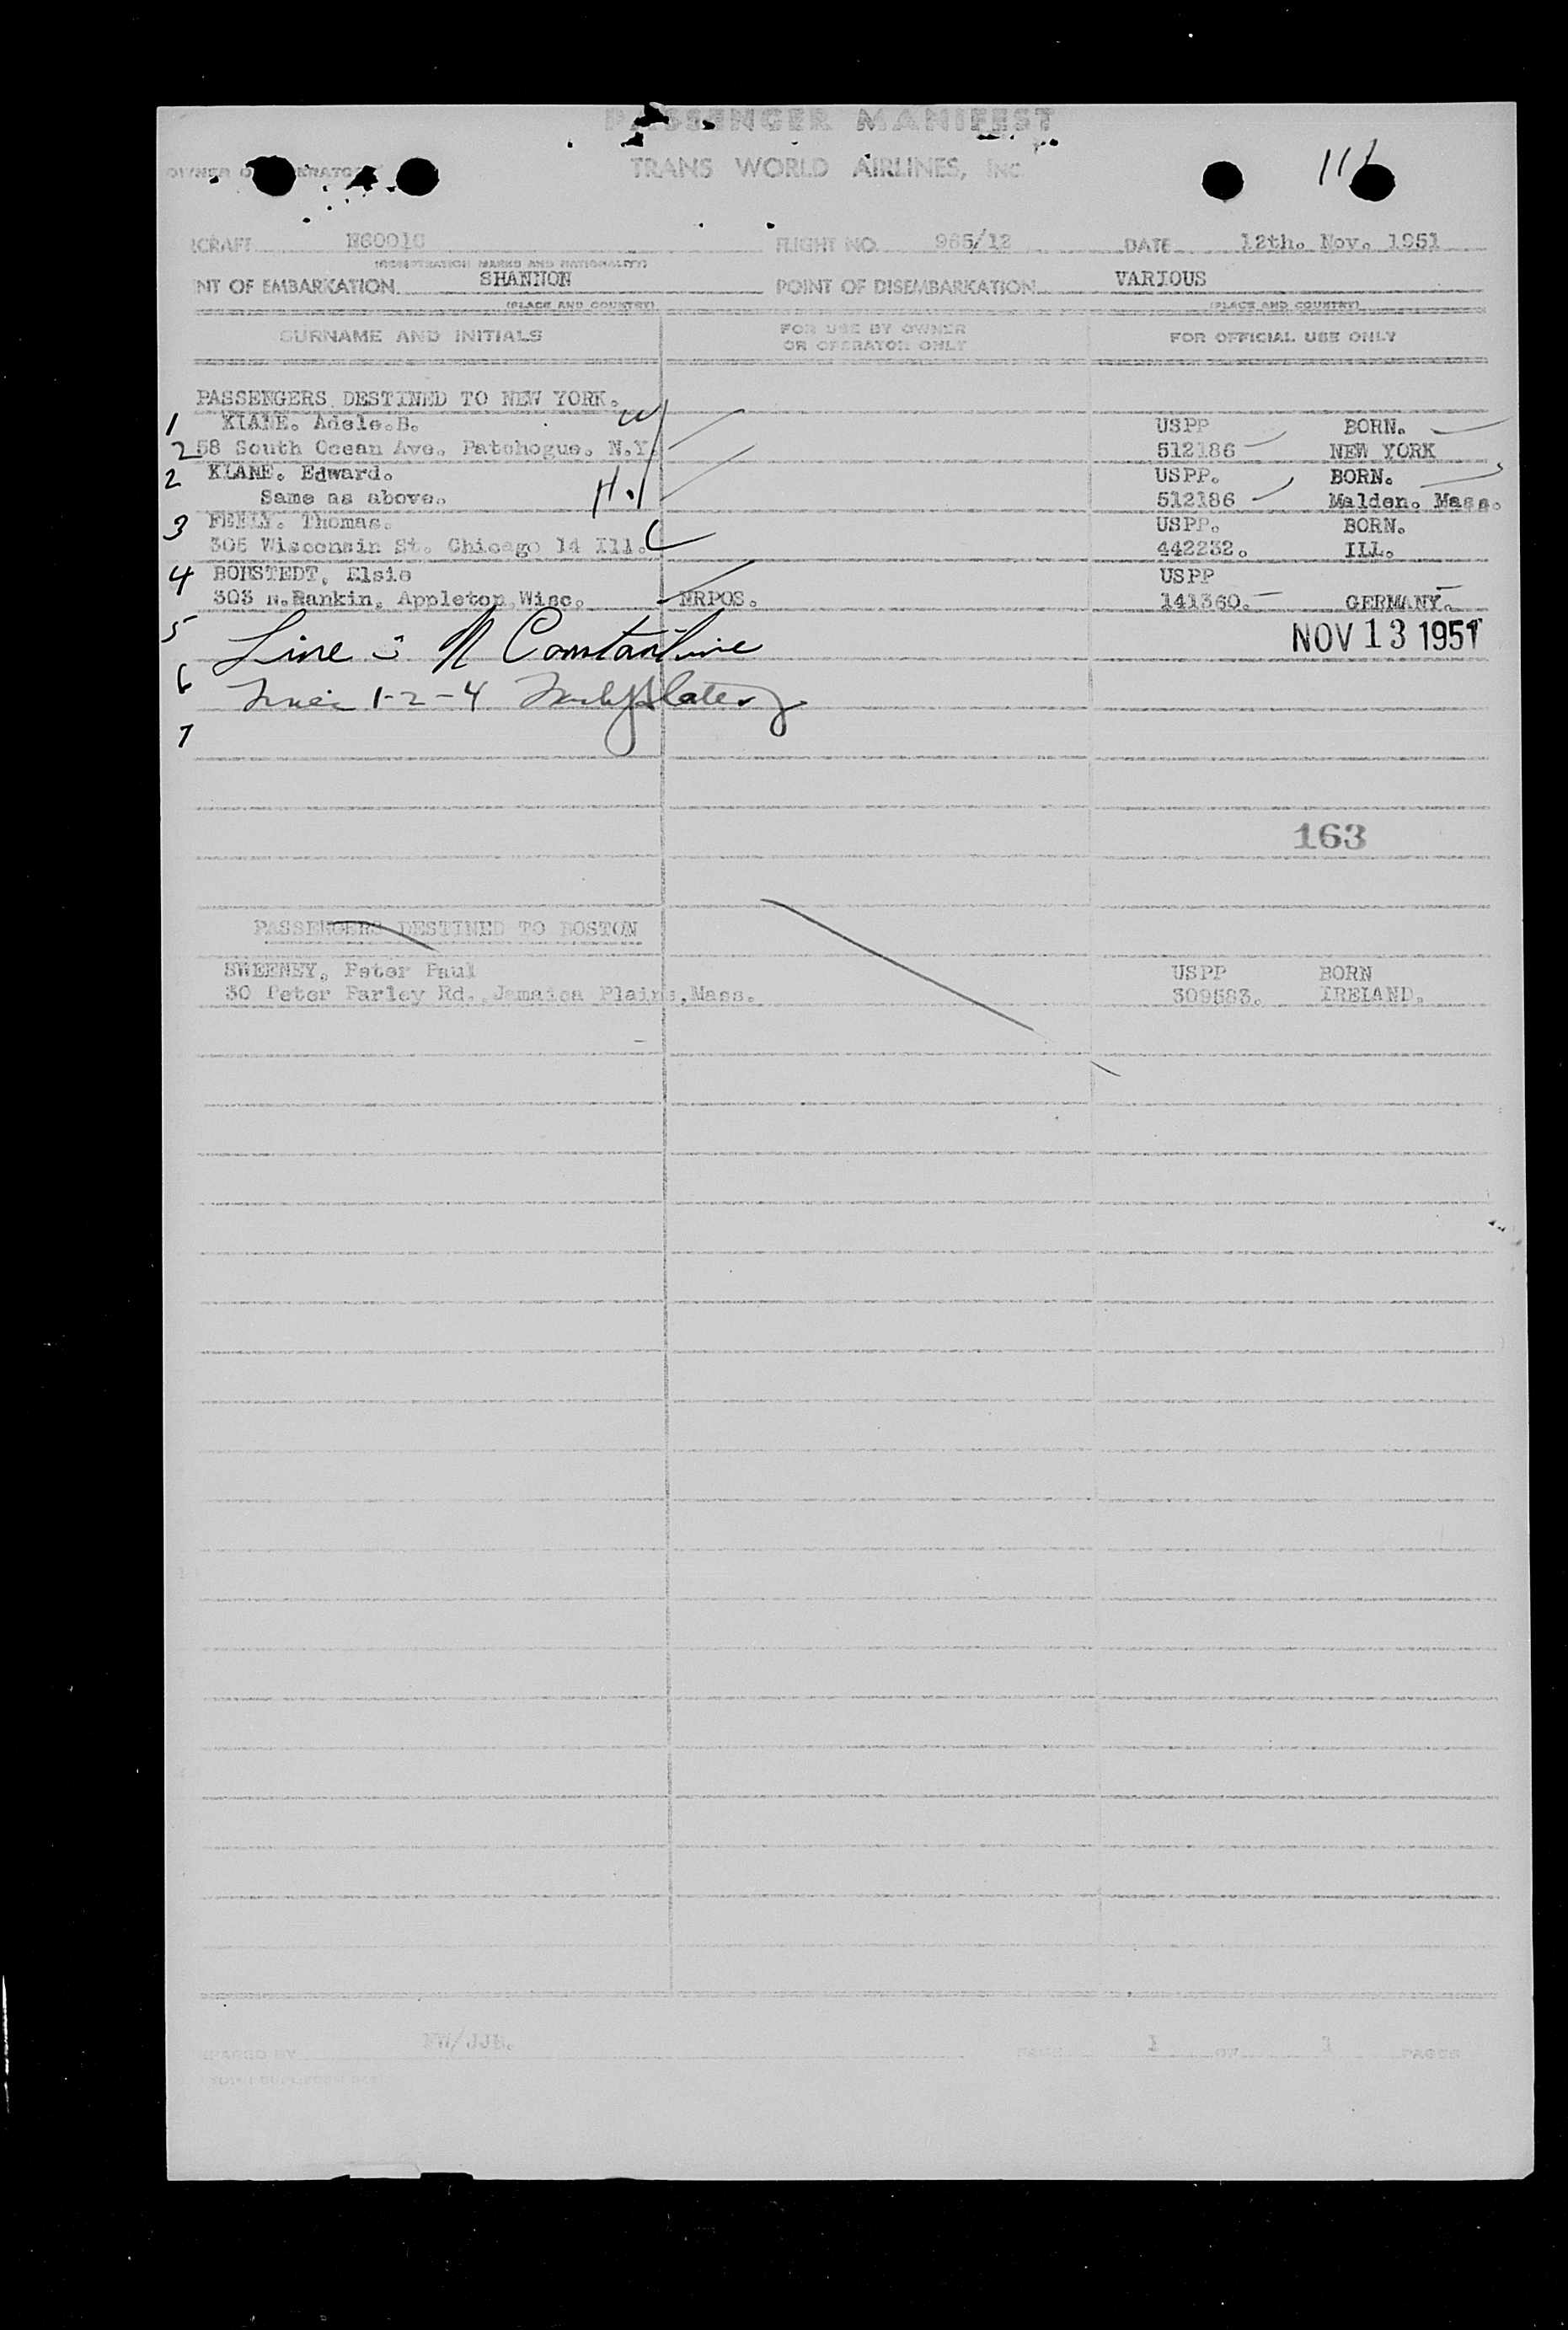 PASSENGER MANIFEST
OWNER O ERATO
TRANS WORLD AIRLINES, INC
111
RCRAFT N6001C FLIGHT NO. 965/12 DATE 12th. Nov. 1951
(REGISTRATION MARKS AND NATIONALITY)
NT OF EMBARKATION SHANNON POINT OF DISEMBARKATION VARIOUS
(PLACE AND COUNTRY) (PLACE AND COUNTRY)
SURNAME AND INITIALS FOR USE BY OWNER OR OPERATOR ONLY FOR OFFICIAL USE ONLY
PASSENGERS DESTINED TO NEW YORK.
1 KLANE. Adele.B. W USPP BORN.
258 South Ocean Ave. Patchogue. N.Y. 512186 NEW YORK
2 KLANE. Edward. USPP. BORN.
Same as above. H. 512186 Malden. Mass.
3 FEELY. Thomas. USPP. BORN.
305 Wisconsin St. Chicago 14 Ill. 442232. ILL.
4 BOHSTEDT, Elsie USPP
303 N.Rankin, Appleton,Wisc. NRPOS. 141360. GERMANY.
5 Line 3 N Constantine NOV 13 1951
6 1-2-4
7
163
PASSENGERS DESTINED TO BOSTON
SWEENEY, Peter Paul USPP BORN
30 Peter Parley Rd., Jamaica Plains,Mass. 309583. IRELAND.
EPARED BY FW/JJB. PAGE 1 OF 1 PAGES